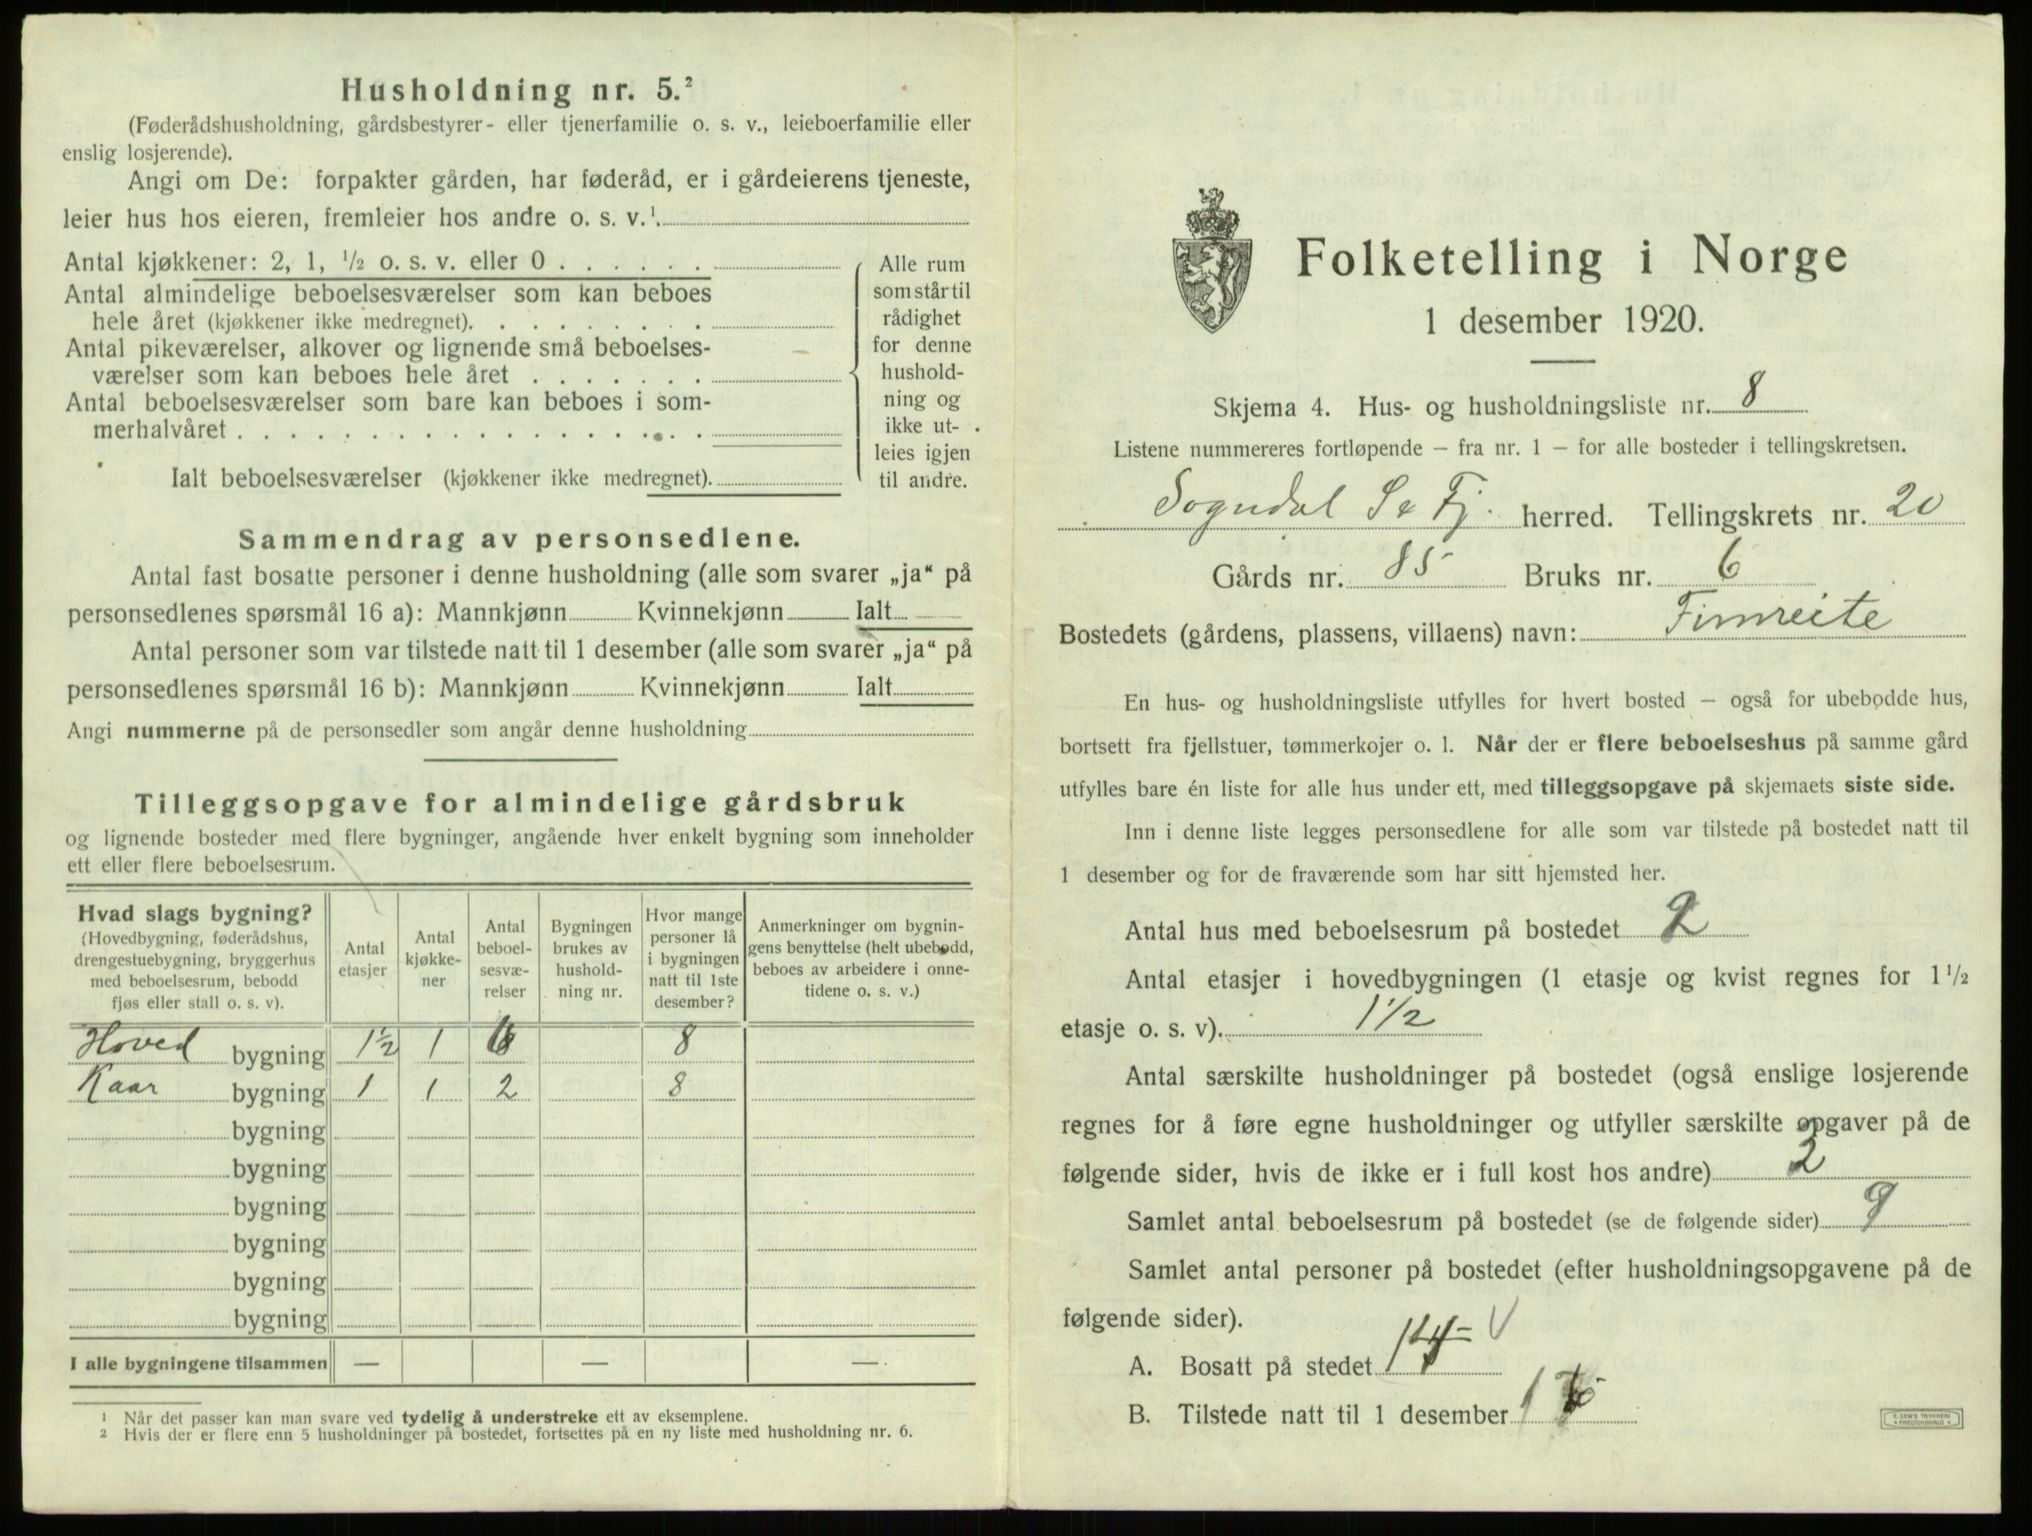 Husholdning nr. 5.²
(Føderådshusholdning, gårdsbestyrer- eller tjenerfamilie o. s. v., leieboerfamilie eller
enslig losjerende).
Angi om De: forpakter gården, har føderåd, er i gårdeierens tjeneste,
leier hus hos eieren, fremleier hos andre o. s. v.¹
Antal kjøkkener: 2, 1, ½ o. s. v. eller 0 . . . . . .
Antal almindelige beboelsesværelser som kan beboes
hele året (kjøkkener ikke medregnet). . . . . . . . .
Antal pikeværelser, alkover og lignende små beboelses-
værelser som kan beboes hele året . . . . . . .
Antal beboelsesværelser som bare kan beboes i som-
merhalvåret . . . . . . . . . . . . . . . . . .
Ialt beboelsesværelser (kjøkkener ikke medregnet).
Alle rum
som står til
rådighet
for denne
hushold-
ning og
ikke ut-
leies igjen
til andre.
Sammendrag av personsedlene.
Antal fast bosatte personer i denne husholdning (alle som svarer „ja“ på
personsedlenes spørsmål 16 a): Mannkjønn Kvinnekjønn Ialt
Antal personer som var tilstede natt til 1 desember (alle som svarer „ja“ på
personsedlenes spørsmål 16 b): Mannkjønn Kvinnekjønn Ialt
Angi nummerne på de personsedler som angår denne husholdning
Tilleggsopgave for almindelige gårdsbruk
og lignende bosteder med flere bygninger, angående hver enkelt bygning som inneholder
ett eller flere beboelsesrum.
Hvad slags bygning?
(Hovedbygning, føderådshus,
drengestuebygning, bryggerhus
med beboelsesrum, bebodd
fjøs eller stall o. s. v).
Antal
etasjer
Antal
kjøkke-
ner
Antal
beboel-
sesvæ-
relser
Bygningen
brukes av
hushold-
ning nr.
Hvor mange
personer lå
i bygningen
natt til 1ste
desember?
Anmerkninger om bygnin-
gens benyttelse (helt ubebodd,
beboes av arbeidere i onne-
tidene o. s. v.)
Hoved bygning 1½ 1 6 8
Kaar bygning 1 1 2 8
bygning
bygning
bygning
bygning
bygning
bygning
I alle bygningene tilsammen — — —
¹ Når det passer kan man svare ved tydelig å understreke ett av eksemplene.
² Hvis der er flere enn 5 husholdninger på bostedet, fortsettes på en ny liste med husholdning nr. 6.
Folketelling i Norge
1 desember 1920.
Skjema 4. Hus- og husholdningsliste nr. 8
Listene nummereres fortløpende — fra nr. 1 — for alle bosteder i tellingskretsen.
Sogndal S & Fj. herred. Tellingskrets nr. 20
Gårds nr. 85 Bruks nr. 6
Bostedets (gårdens, plassens, villaens) navn: Fimreite
En hus- og husholdningsliste utfylles for hvert bosted — også for ubebodde hus,
bortsett fra fjellstuer, tømmerkojer o. l. Når der er flere beboelseshus på samme gård
utfylles bare én liste for alle hus under ett, med tilleggsopgave på skjemaets siste side.
Inn i denne liste legges personsedlene for alle som var tilstede på bostedet natt til
1 desember og for de fraværende som har sitt hjemsted her.
Antal hus med beboelsesrum på bostedet 2
Antal etasjer i hovedbygningen (1 etasje og kvist regnes for 1½
etasje o. s. v). 1½
Antal særskilte husholdninger på bostedet (også enslige losjerende
regnes for å føre egne husholdninger og utfyller særskilte opgaver på de
følgende sider, hvis de ikke er i full kost hos andre)
Samlet antal beboelsesrum på bostedet (se de følgende sider) 9
Samlet antal personer på bostedet (efter husholdningsopgavene på de
følgende sider).
A. Bosatt på stedet
B. Tilstede natt til 1 desember